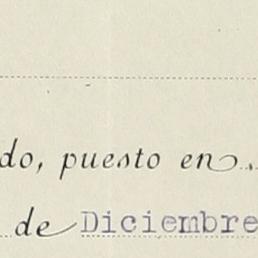 do, puesto en
de Diciembre